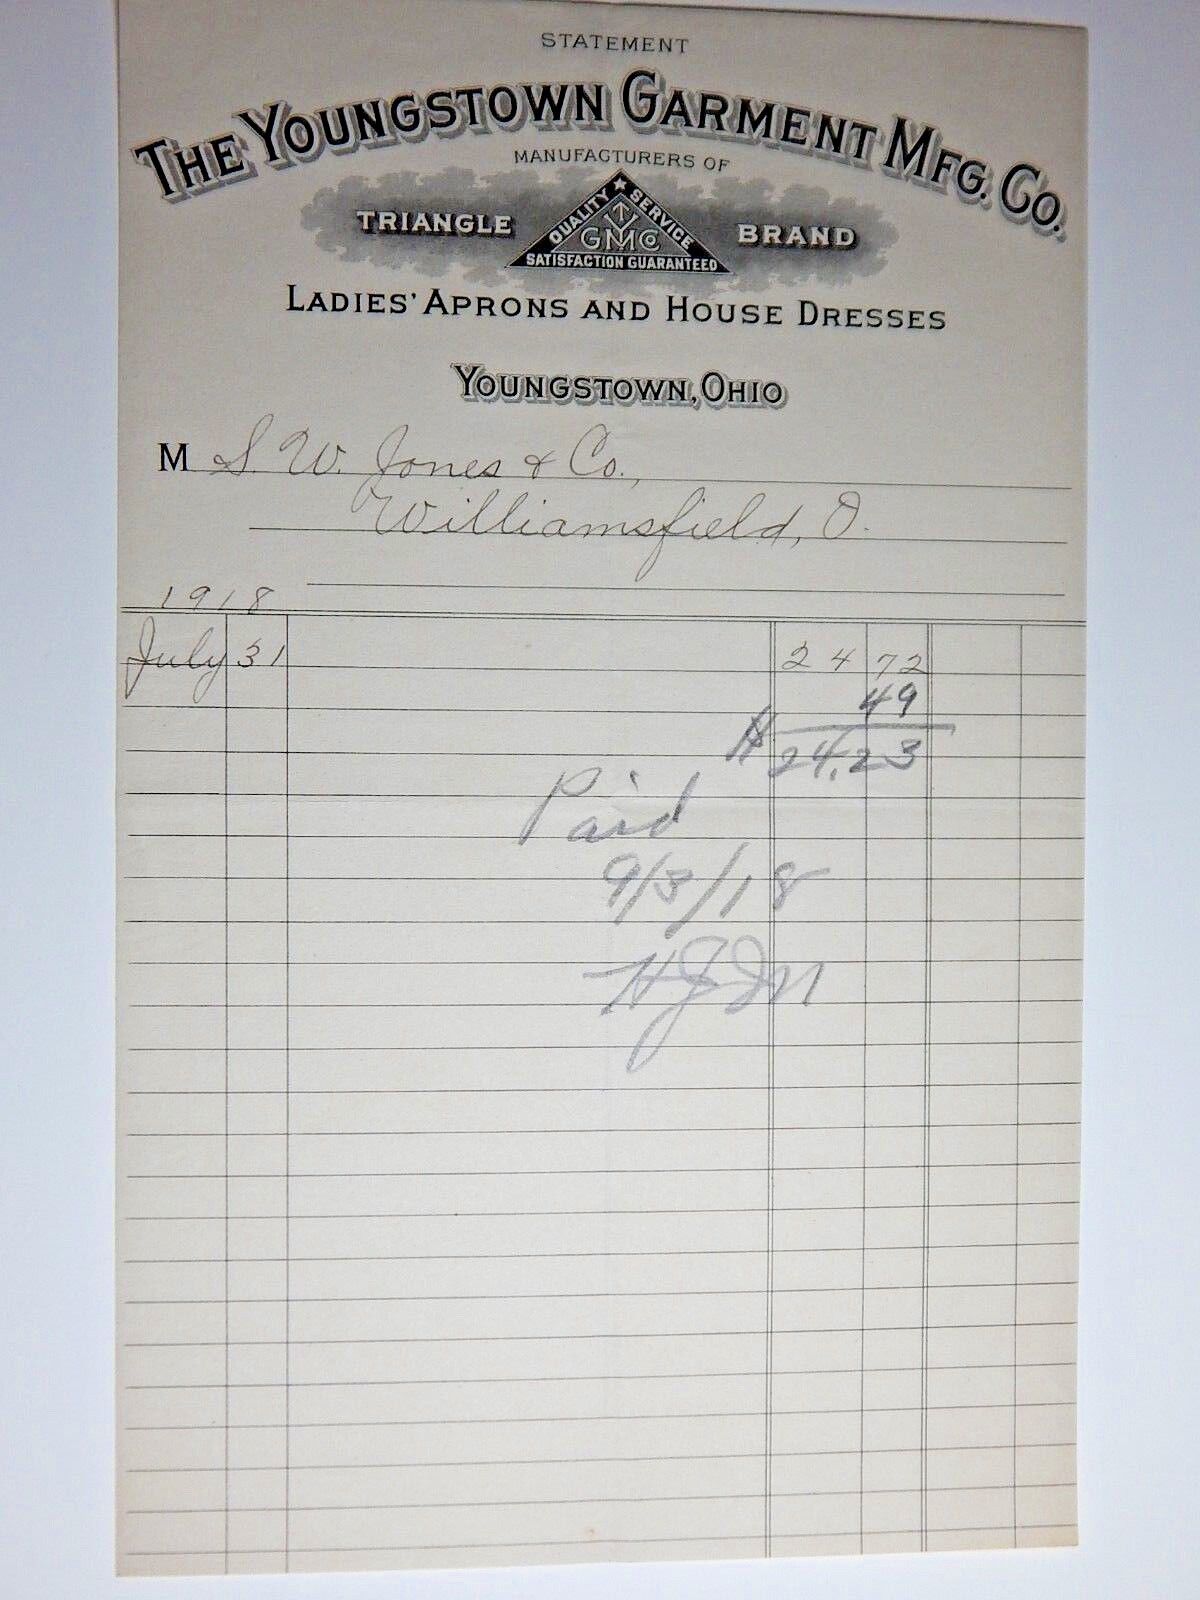 STATEMENT
THE YOUNGSTOWN GARMENT MFG. CO.
MANUFACTURERS OF
TRIANGLE QUALITY ★ SERVICE BRAND
Y
GMCo
SATISFACTION GUARANTEED
LADIES' APRONS AND HOUSE DRESSES
YOUNGSTOWN, OHIO
M S. W. Jones & Co.,
Williamsfield, O.
1918
July 31 24 72
49
24.23
Paid
9/3/18